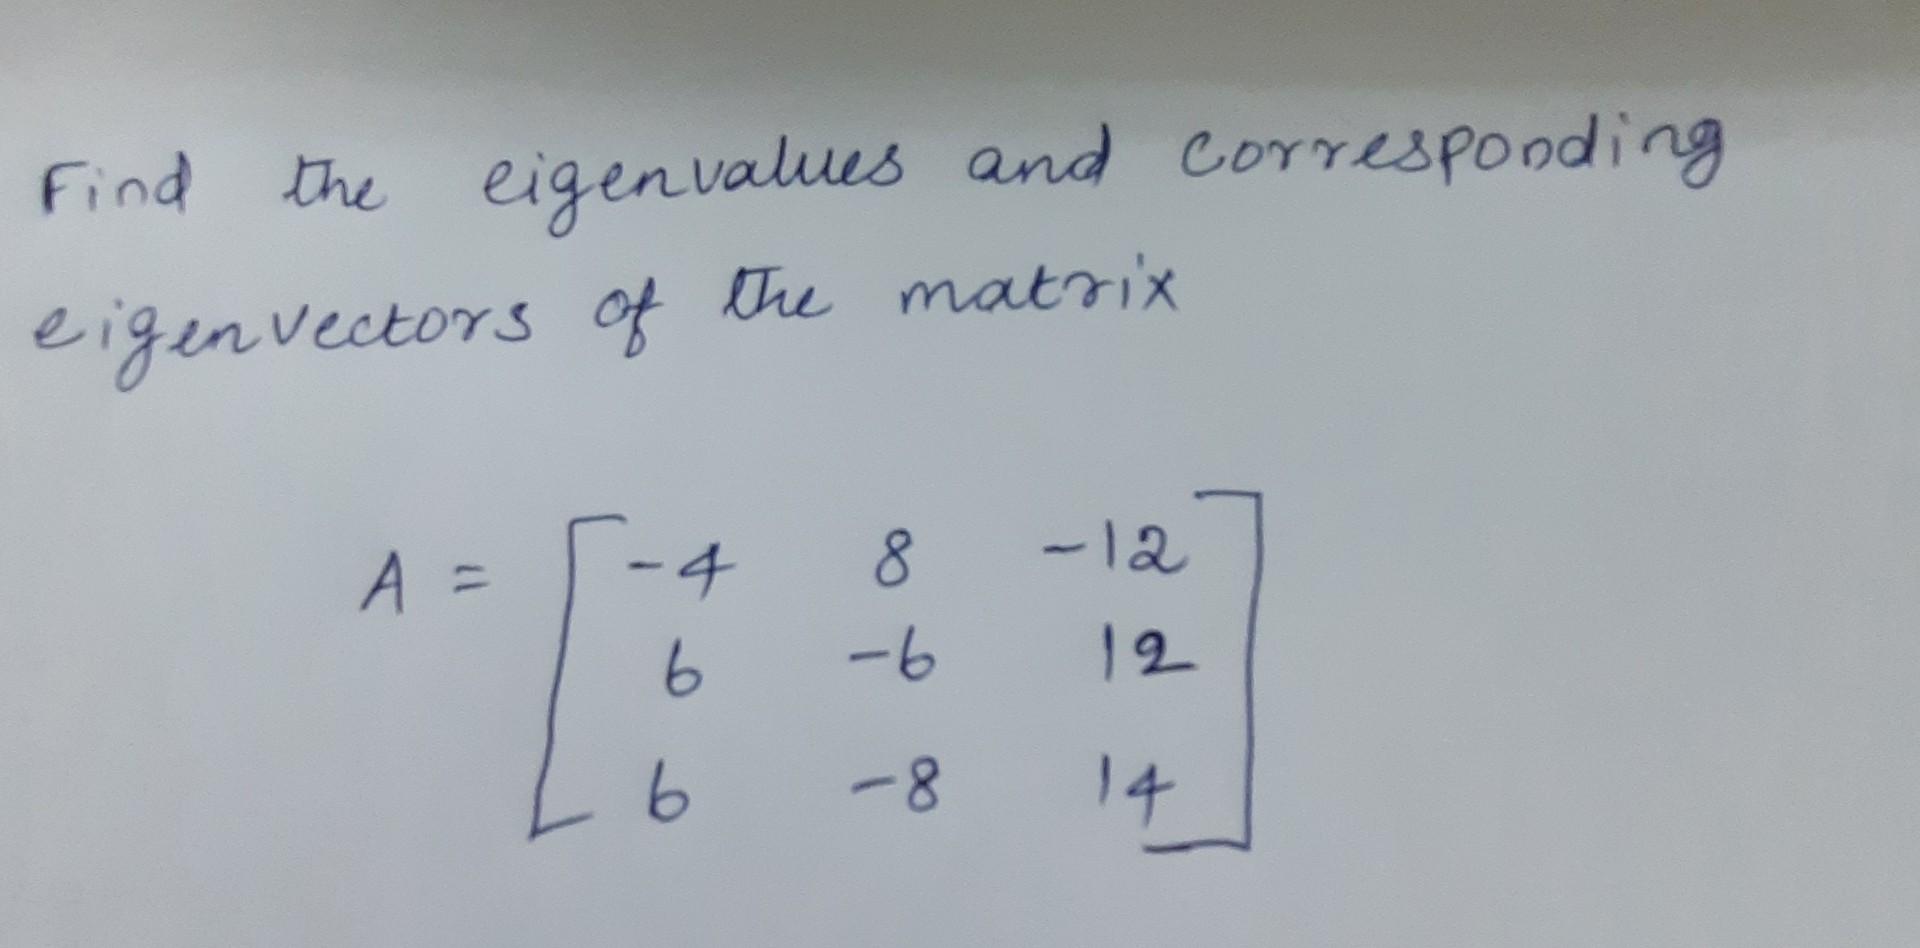 Find the eigenvalues and corresponding
eigenvectors of the matrix
A = [ -4 8 -12
6 -6 12
6 -8 14 ]